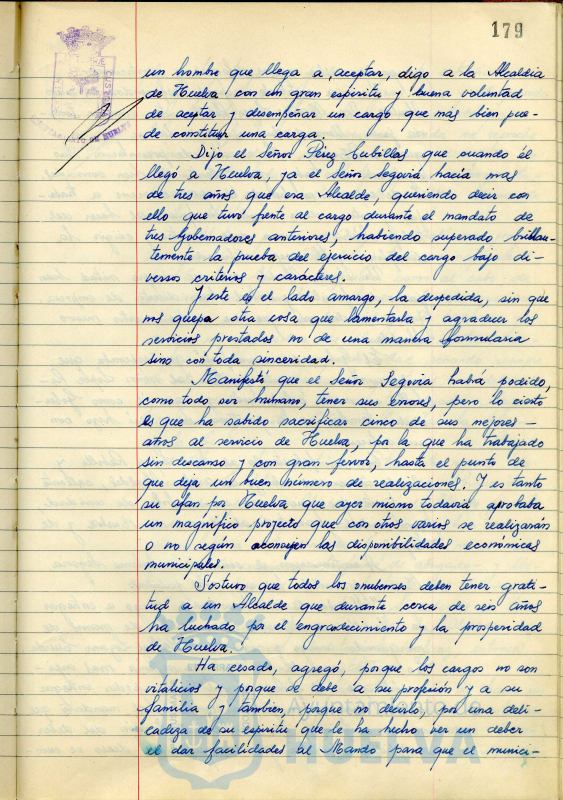 179
un hombre que llega a aceptar, digo a la Alcaldia
de Huelva con un gran espiritu y buena voluntad
de aceptar y desempeñar un cargo que más bien pue-
de constituir una carga.
Dijo el Señor Pérez Cubillas que cuando él
llegó a Huelva, ya el Señor Segovia hacia mas
de tres años que era Alcalde, queriendo decir con
ello que tuvo frente al cargo durante el mandato de
tres Gobernadores anteriores, habiendo superado brillan-
temente la prueba del ejercicio del cargo bajo di-
versos criterios y carácteres.
Y este es el lado amargo, la despedida, sin que
nos quepa otra cosa que lamentarla y agradecer los
servicios prestados no de una manera formularia
sino con toda sinceridad.
Manifestó que el Señor Segovia habrá podido,
como todo ser humano, tener sus errores, pero lo cierto
es que ha sabido sacrificar cinco de sus mejores -
años al servicio de Huelva, por la que ha trabajado
sin descanso y con gran fervor, hasta el punto de
que deja un buen número de realizaciones. Y es tanto
su afan por Huelva que ayer mismo todavia aprobaba
un magnifico proyecto que con otros varios se realizarán
o no según aconsejen las disponibilidades económicas
municipales.
Sostuvo que todos los onubenses deben tener grati-
tud a un Alcalde que durante cerca de seis años
ha luchado por el engrandecimiento y la prosperidad
de Huelva.
Ha cesado, agregó, porque los cargos no son
vitalicios y porque se debe a su profesión y a su
familia y tambien, porque no decirlo, por una deli-
cadeza de su espiritu que le ha hecho ver un deber
el dar facilidades al Mando para que el munici-
HUELVA